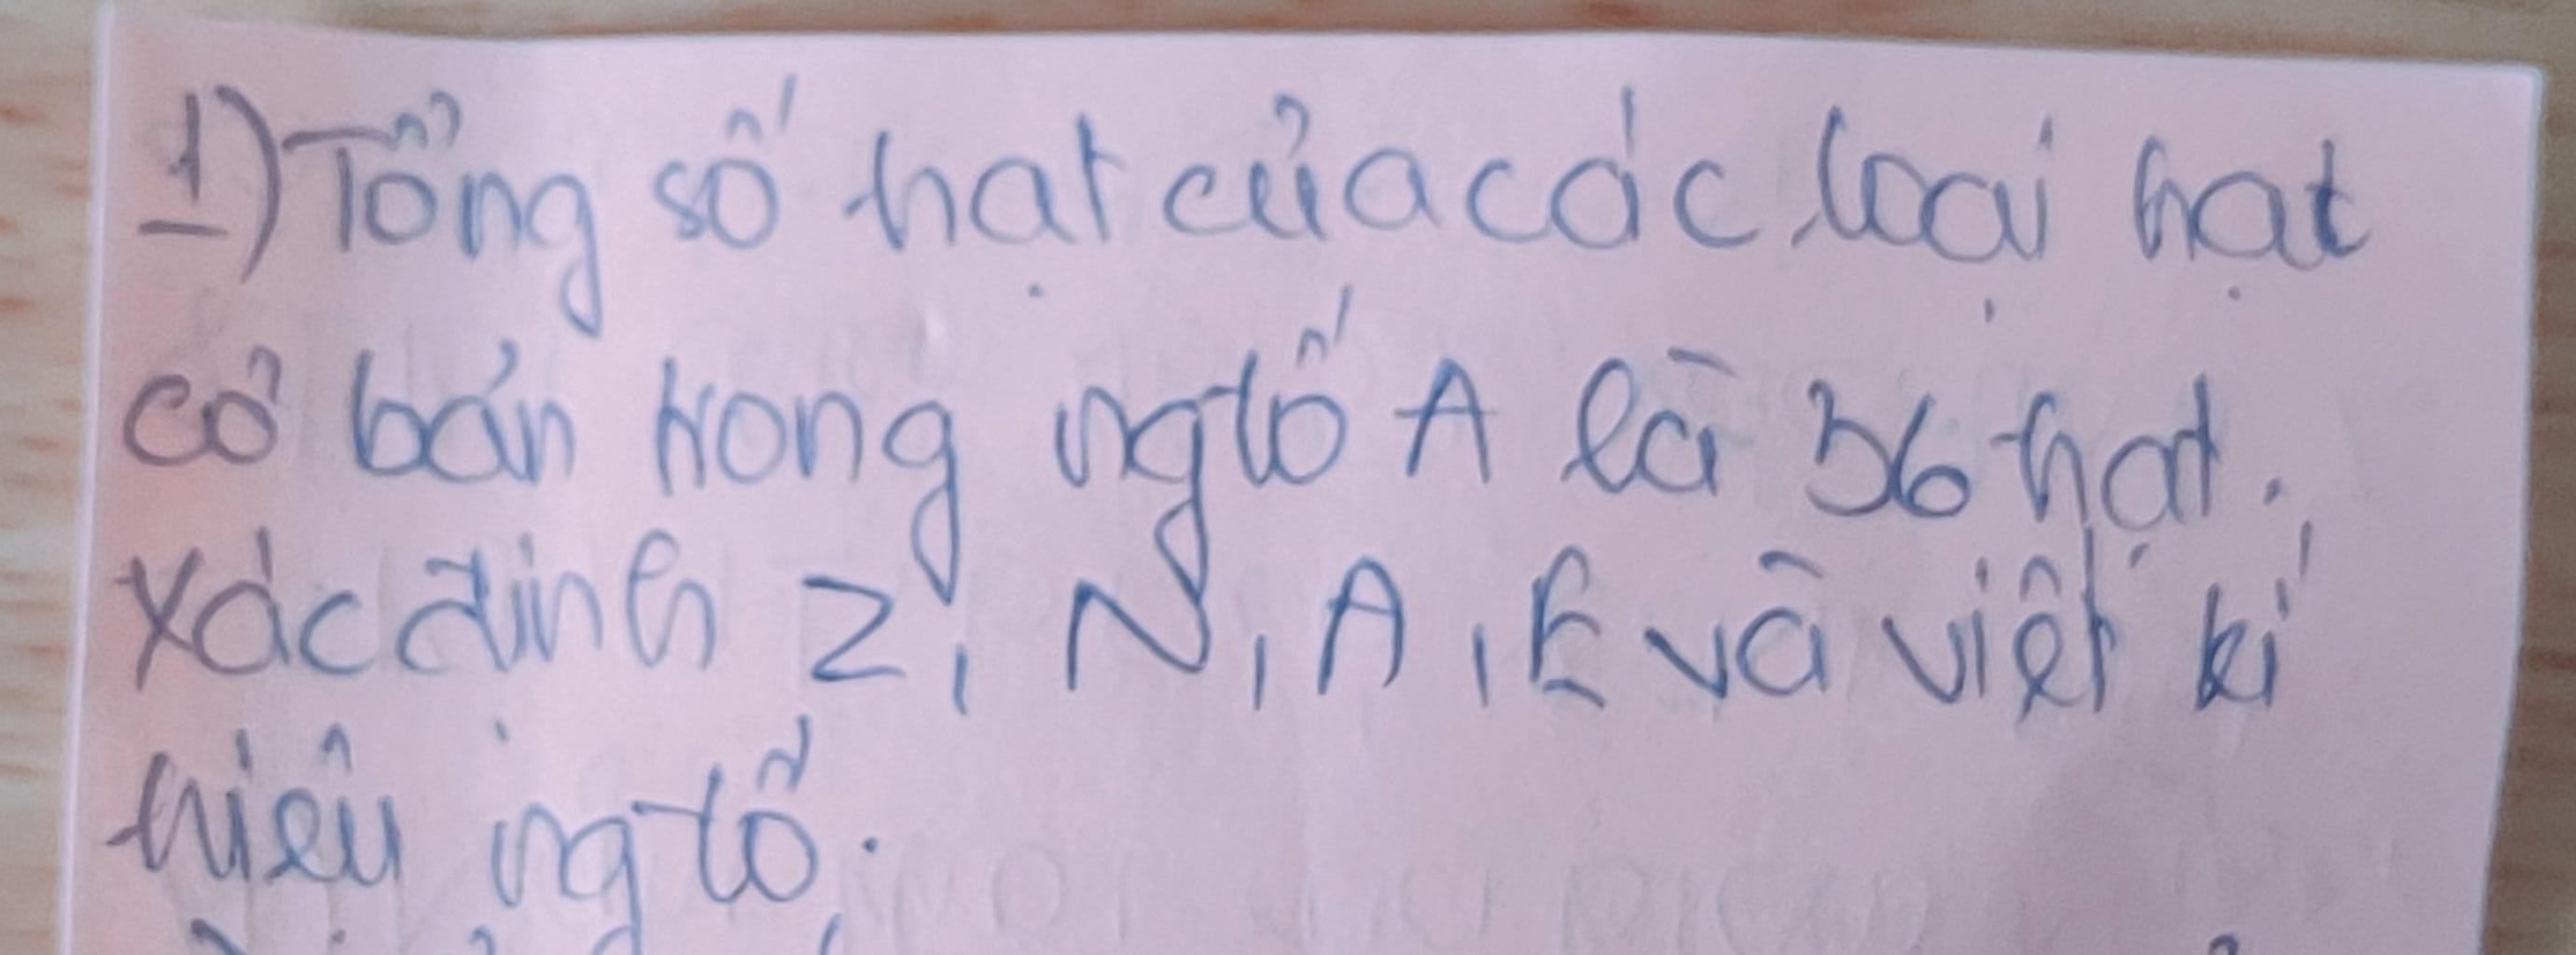 1) Tổng số hạt của các loại hạt
cơ bản trong ngtố A là 36 hạt.
Xác định Z, N, A, E và viết kí
hiệu ngtố.